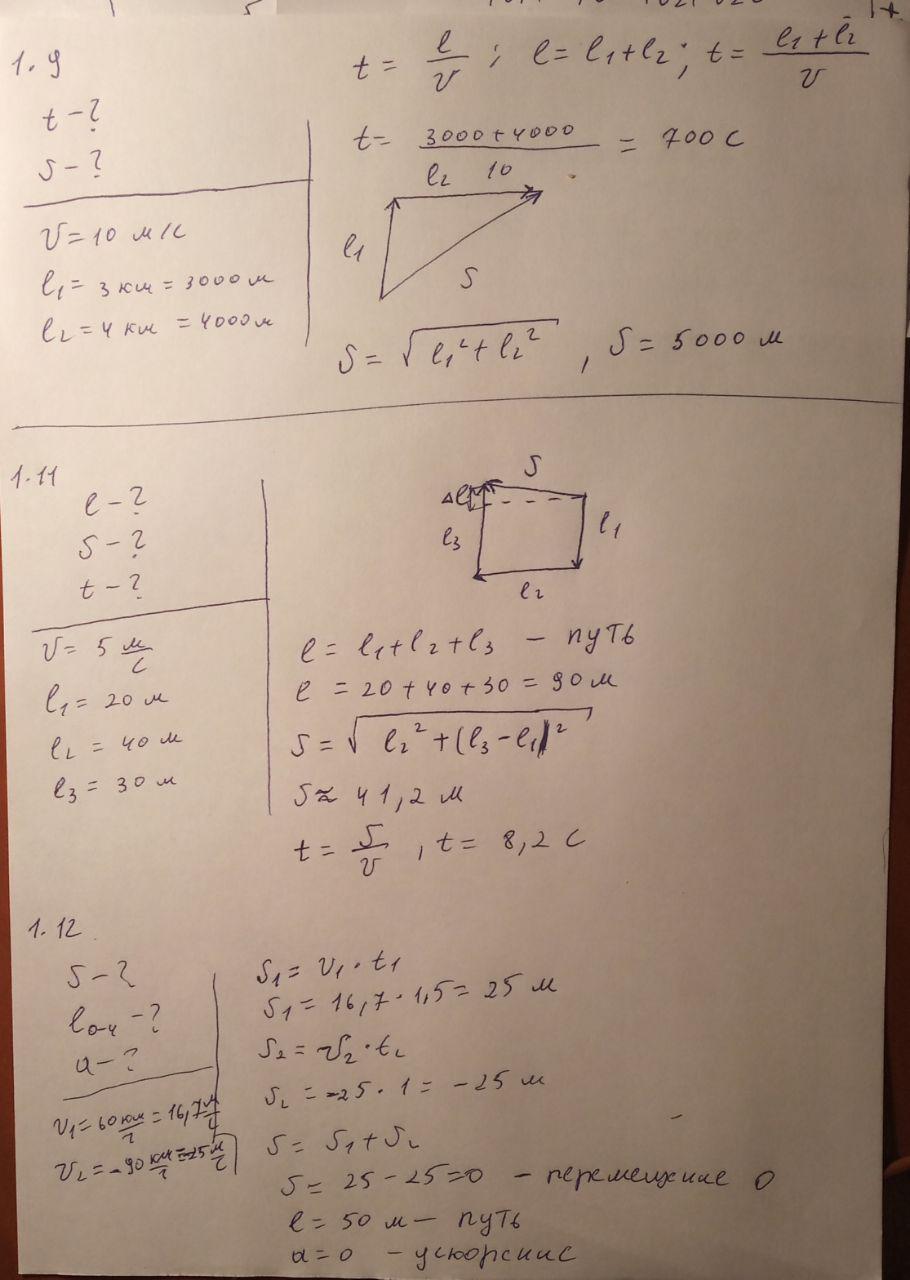 1.9
t = l/v ; l = l₁+l₂ ; t = (l₁+l₂)/v
t - ?
S - ?
t = (3000+4000)/10 = 700 с
v = 10 м/с
l₁ = 3 км = 3000 м
l₂ = 4 км = 4000 м
l₂
l₁
S
S = √(l₁² + l₂²) , S = 5000 м
1.11
l - ?
S - ?
t - ?
v = 5 м/с
l₁ = 20 м
l₂ = 40 м
l₃ = 30 м
S
Δl
l₃
l₁
l₂
l = l₁+l₂+l₃ - путь
l = 20+40+30 = 90 м
S = √(l₂² + (l₃-l₁)²)
S ≈ 41,2 м
t = S/v , t = 8,2 с
1.12
S - ?
l₀₋₄ - ?
a - ?
v₁ = 60 км/г = 16,7 м/с
v₂ = -90 км/г = -25 м/с
S₁ = v₁ · t₁
S₁ = 16,7 · 1,5 = 25 м
S₂ = v₂ · t₂
S₂ = -25 · 1 = -25 м
S = S₁ + S₂
S = 25 - 25 = 0 - перемещение 0
l = 50 м - путь
a = 0 - ускорение